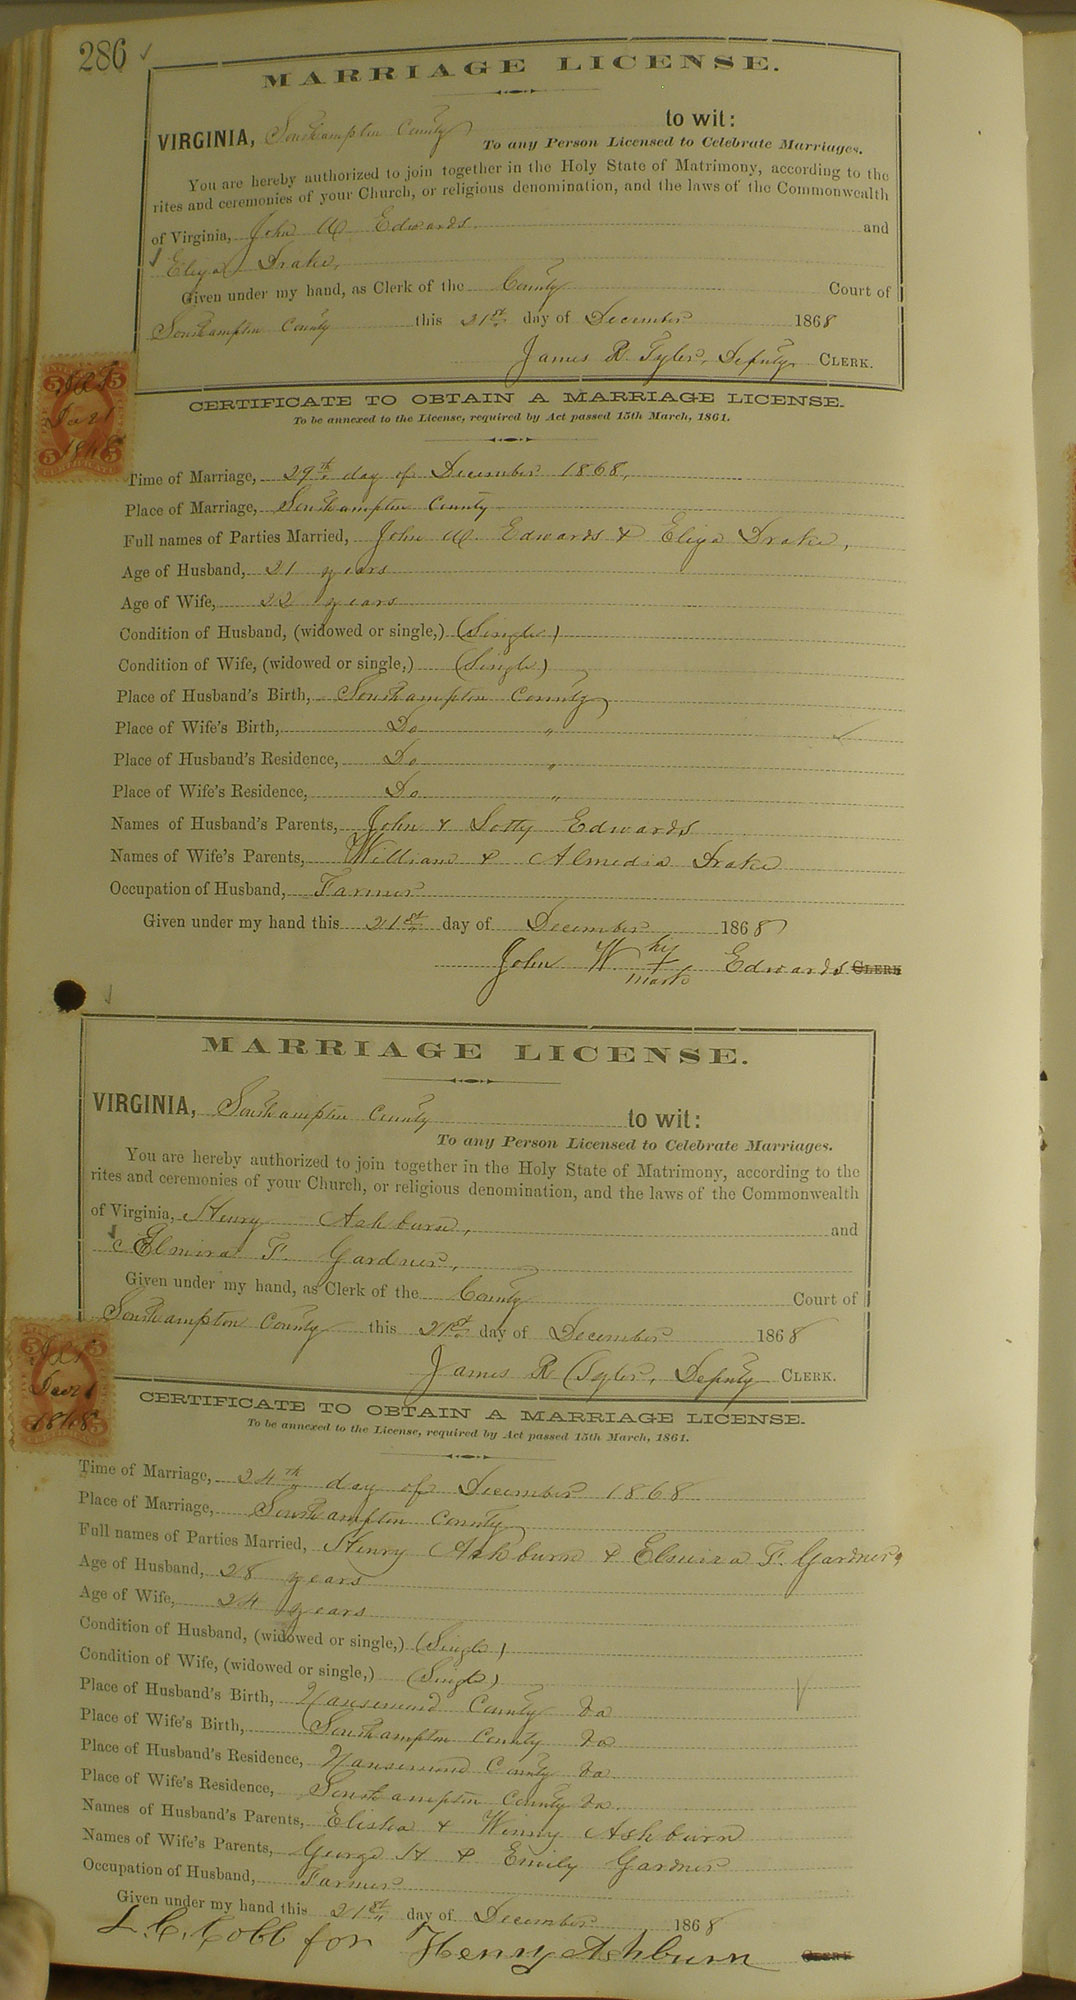 286
MARRIAGE LICENSE.
VIRGINIA, Southampton County to wit:
To any Person Licensed to Celebrate Marriages.
You are hereby authorized to join together in the Holy State of Matrimony, according to the
rites and ceremonies of your Church, or religious denomination, and the laws of the Commonwealth
of Virginia, John W. Edwards and
Eliza Drake,
Given under my hand, as Clerk of the County Court of
Southampton County this 21st day of December 1868
James R. Tyler, Deputy CLERK.
CERTIFICATE TO OBTAIN A MARRIAGE LICENSE.
To be annexed to the License, required by Act passed 15th March, 1861.
Time of Marriage, 29th day of December 1868,
Place of Marriage, Southampton County
Full names of Parties Married, John W. Edwards & Eliza Drake,
Age of Husband, 21 years
Age of Wife, 22 years
Condition of Husband, (widowed or single,) (Single)
Condition of Wife, (widowed or single,) (Single)
Place of Husband's Birth, Southampton County
Place of Wife's Birth, Do "
Place of Husband's Residence, Do "
Place of Wife's Residence, Do "
Names of Husband's Parents, John & Lotty Edwards
Names of Wife's Parents, William & Almedia Drake
Occupation of Husband, Farmer
Given under my hand this 21st day of December 1868
John W. his + mark Edwards CLERK
MARRIAGE LICENSE.
VIRGINIA, Southampton County to wit:
To any Person Licensed to Celebrate Marriages.
You are hereby authorized to join together in the Holy State of Matrimony, according to the
rites and ceremonies of your Church, or religious denomination, and the laws of the Commonwealth
of Virginia, Henry Ashburn, and
Elmira F. Gardner,
Given under my hand, as Clerk of the County Court of
Southampton County this 21st day of December 1868
James R. Tyler, Deputy CLERK.
CERTIFICATE TO OBTAIN A MARRIAGE LICENSE.
To be annexed to the License, required by Act passed 15th March, 1861.
Time of Marriage, 24th day of December 1868
Place of Marriage, Southampton County
Full names of Parties Married, Henry Ashburn & Elmira F. Gardner,
Age of Husband, 28 years
Age of Wife, 24 years
Condition of Husband, (widowed or single,) (Single)
Condition of Wife, (widowed or single,) (Single)
Place of Husband's Birth, Nansemond County Va
Place of Wife's Birth, Southampton County Va
Place of Husband's Residence, Nansemond County Va
Place of Wife's Residence, Southampton County Va.
Names of Husband's Parents, Elisha & Winny Ashburn
Names of Wife's Parents, George H & Emily Gardner
Occupation of Husband, Farmer
Given under my hand this 21st day of December 1868
L. C. Cobb for Henry Ashburn CLERK